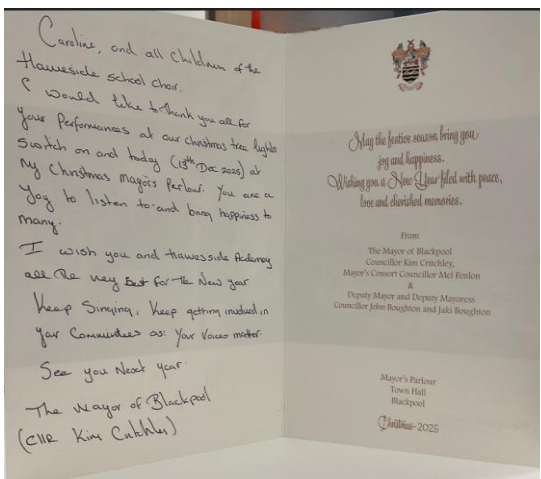 Caroline, and all Children of the
Hawesside school choir.
I would like to thank you all for
your Performances at our christmas tree lights
switch on and today (13th Dec 2025) at
my Christmas mayors Parlour. You are a
Joy to listen to and bring happiness to
many.
I wish you and Hawesside Academy
all the very best for the New year
Keep Singing, Keep getting involved in
your Communities as: Your Voices matter.
See you Next year.
The Mayor of Blackpool
(Cllr Kim Critchley)
May the festive season bring you
joy and happiness.
Wishing you a New Year filled with peace,
love and cherished memories.
From
The Mayor of Blackpool
Councillor Kim Critchley,
Mayor's Consort Councillor Mel Fenlon
&
Deputy Mayor and Deputy Mayoress
Councillor John Boughton and Jaki Boughton
Mayor's Parlour
Town Hall
Blackpool
Christmas-2025